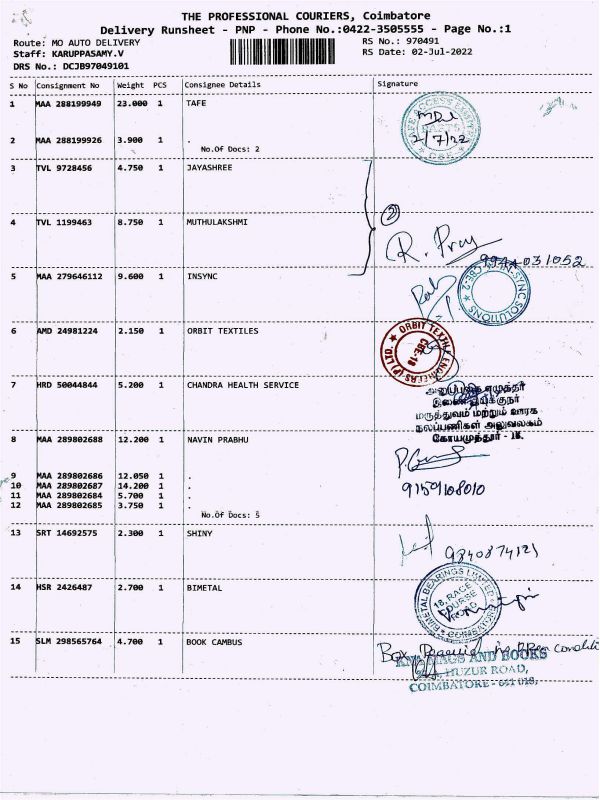 THE PROFESSIONAL COURIERS, Coimbatore
Delivery Runsheet - PNP - Phone No.:0422-3505555 - Page No.:1
Route: MO AUTO DELIVERY RS No.: 970491
Staff: KARUPPASAMY.V RS Date: 02-Jul-2022
DRS No.: DCJB97049101
S No Consignment No Weight PCS Consignee Details Signature
1 MAA 288199949 23.000 1 TAFE
2/7/22
2 MAA 288199926 3.900 1 .
No.Of Docs: 2
3 TVL 9728456 4.750 1 JAYASHREE
2
4 TVL 1199463 8.750 1 MUTHULAKSHMI
9944031052
5 MAA 279646112 9.600 1 INSYNC
IN-SYNC SOLUTIONS CBE-2
6 AMD 24981224 2.150 1 ORBIT TEXTILES
ORBIT TEXTILE ENGINEERS (P) LTD. CBE-18
7 HRD 50044844 5.200 1 CHANDRA HEALTH SERVICE
இணை இயக்குநர்
மருத்துவம் மற்றும் ஊரக
நலப்பணிகள் அலுவலகம்
கோயமுத்தூர் - 18.
8 MAA 289802688 12.200 1 NAVIN PRABHU
9 MAA 289802686 12.050 1 .
10 MAA 289802687 14.200 1 .
11 MAA 289802684 5.700 1 .
12 MAA 289802685 3.750 1 .
9159108010
No.Of Docs: 5
13 SRT 14692575 2.300 1 SHINY
9840874121
14 HSR 2426487 2.700 1 BIMETAL
BIMETAL BEARINGS LIMITED
18, RACE
COURSE
ROAD
COIMBATORE
15 SLM 298565764 4.700 1 BOOK CAMBUS
Box
MAGS AND BOOKS
HUZUR ROAD,
COIMBATORE - 641 018.